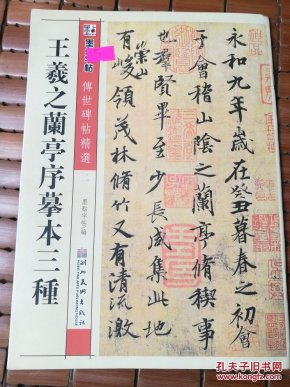 墨點字帖
傳世碑帖精選
王羲之蘭亭序摹本三種
墨點字帖 編
湖北美術出版社
永和九年歲在癸丑暮春之初會
于會稽山陰之蘭亭脩稧事
也羣賢畢至少長咸集此地
有崇山峻領茂林脩竹又有清流激
孔夫子旧书网